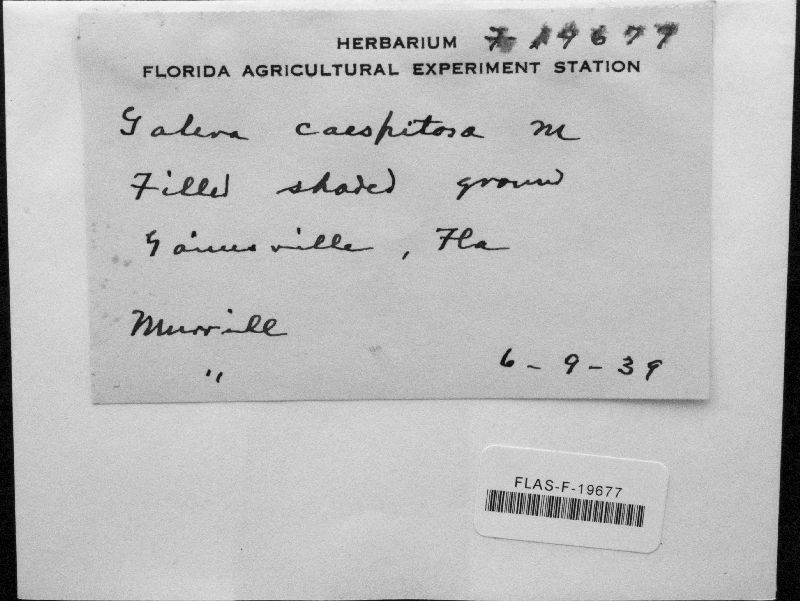 HERBARIUM F 19677
FLORIDA AGRICULTURAL EXPERIMENT STATION
Galera caespitosa M
Filled shaded ground
Gainesville, Fla
Murrill
"
6-9-39
FLAS-F-19677